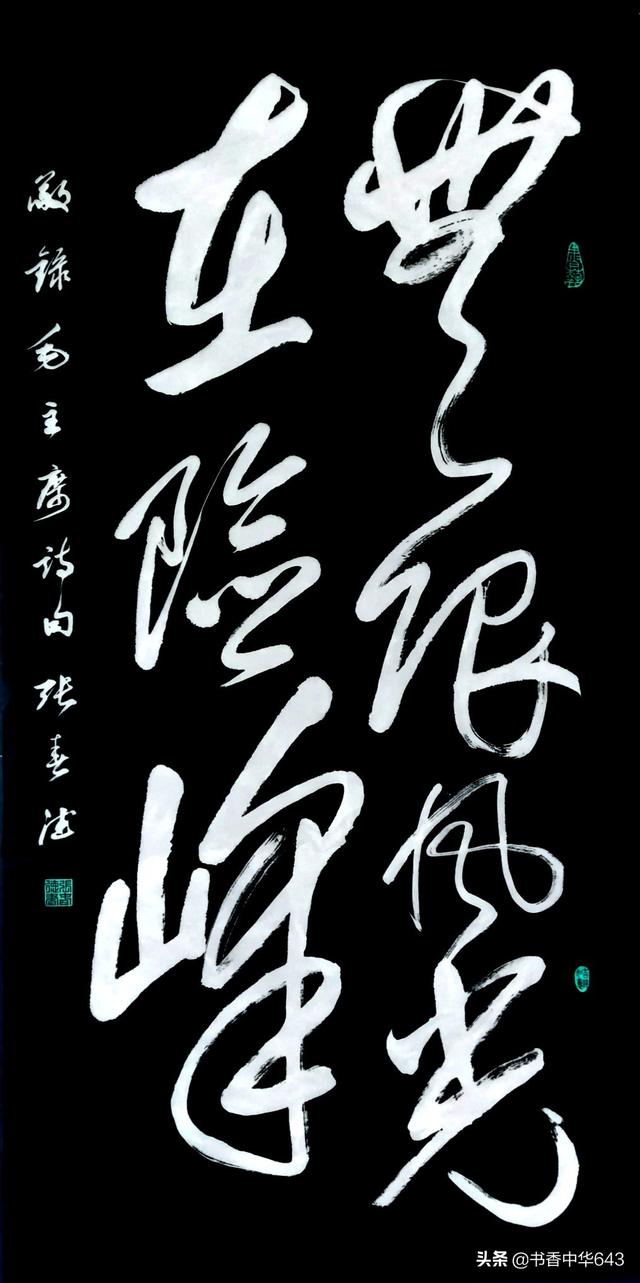 無限风光
在險峰
敬録毛主席诗句 张春
头条 @书香中华643